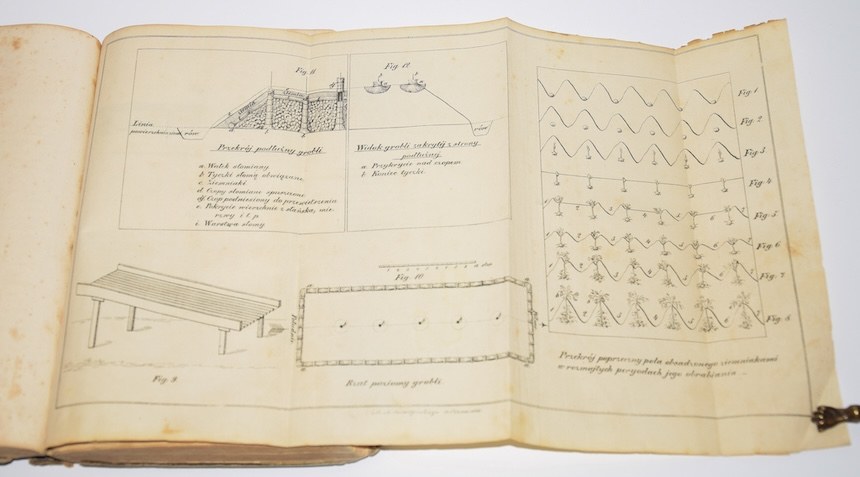 Fig 11
Linia
powierzchni
rów
Przekrój podłużny grobli
a. Wałek słomiany
b Tyczki słomą obwiązane
c. Ziemniaki
d Czopy słomiane
Czop podniesiony do
e. Pokrycie wierzchnie z
i. Warstwa słomy
Fig. 12
rów
Widok grobli zakrytéj z strony
podłużnej
a. Przykrycie nad czopem
b. Koniec tyczki
Fig. 9
Fig. 10
Rzut poziomy grobli
Fig 1
Fig. 2
Fig 3
Fig. 4
Fig. 5
Fig. 6
Fig. 7
Fig. 8
Przekrój poprzeczny pola obsadzonego ziemniakami
w rozmaitych peryodach jego obrabiania